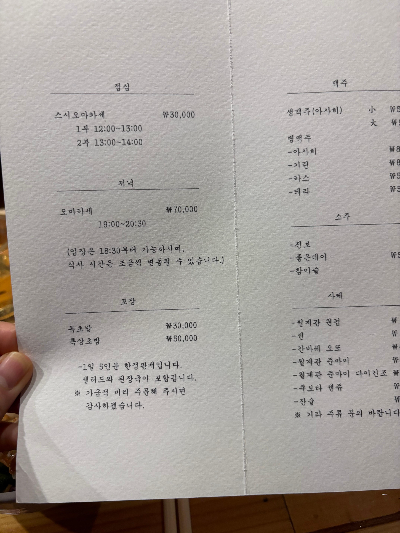 점심
스시오마카세 ₩30,000
1부 12:00~13:00
2부 13:00~14:00
저녁
오마카세 ₩70,000
19:00~20:30
(입장은 18:30부터 가능하시며,
식사 시간은 조금씩 변동될 수 있습니다.)
포장
특초밥 ₩30,000
특상초밥 ₩50,000
-1일 5인분 한정판매입니다.
샐러드와 된장국이 포함됩니다.
※ 가급적 미리 주문해 주시면
감사하겠습니다.
맥주
생맥주(아사히) 小
大
병맥주
-아사히
-기린
-테라
소주
-진로
-좋은데이
-참이슬
사케
-월계관
-간바레 오또
-월계관 준마이
-월계관 준마이 다이긴조
-쿠보타 센쥬
-잔술
※ 기타 주류 문의 바랍니다